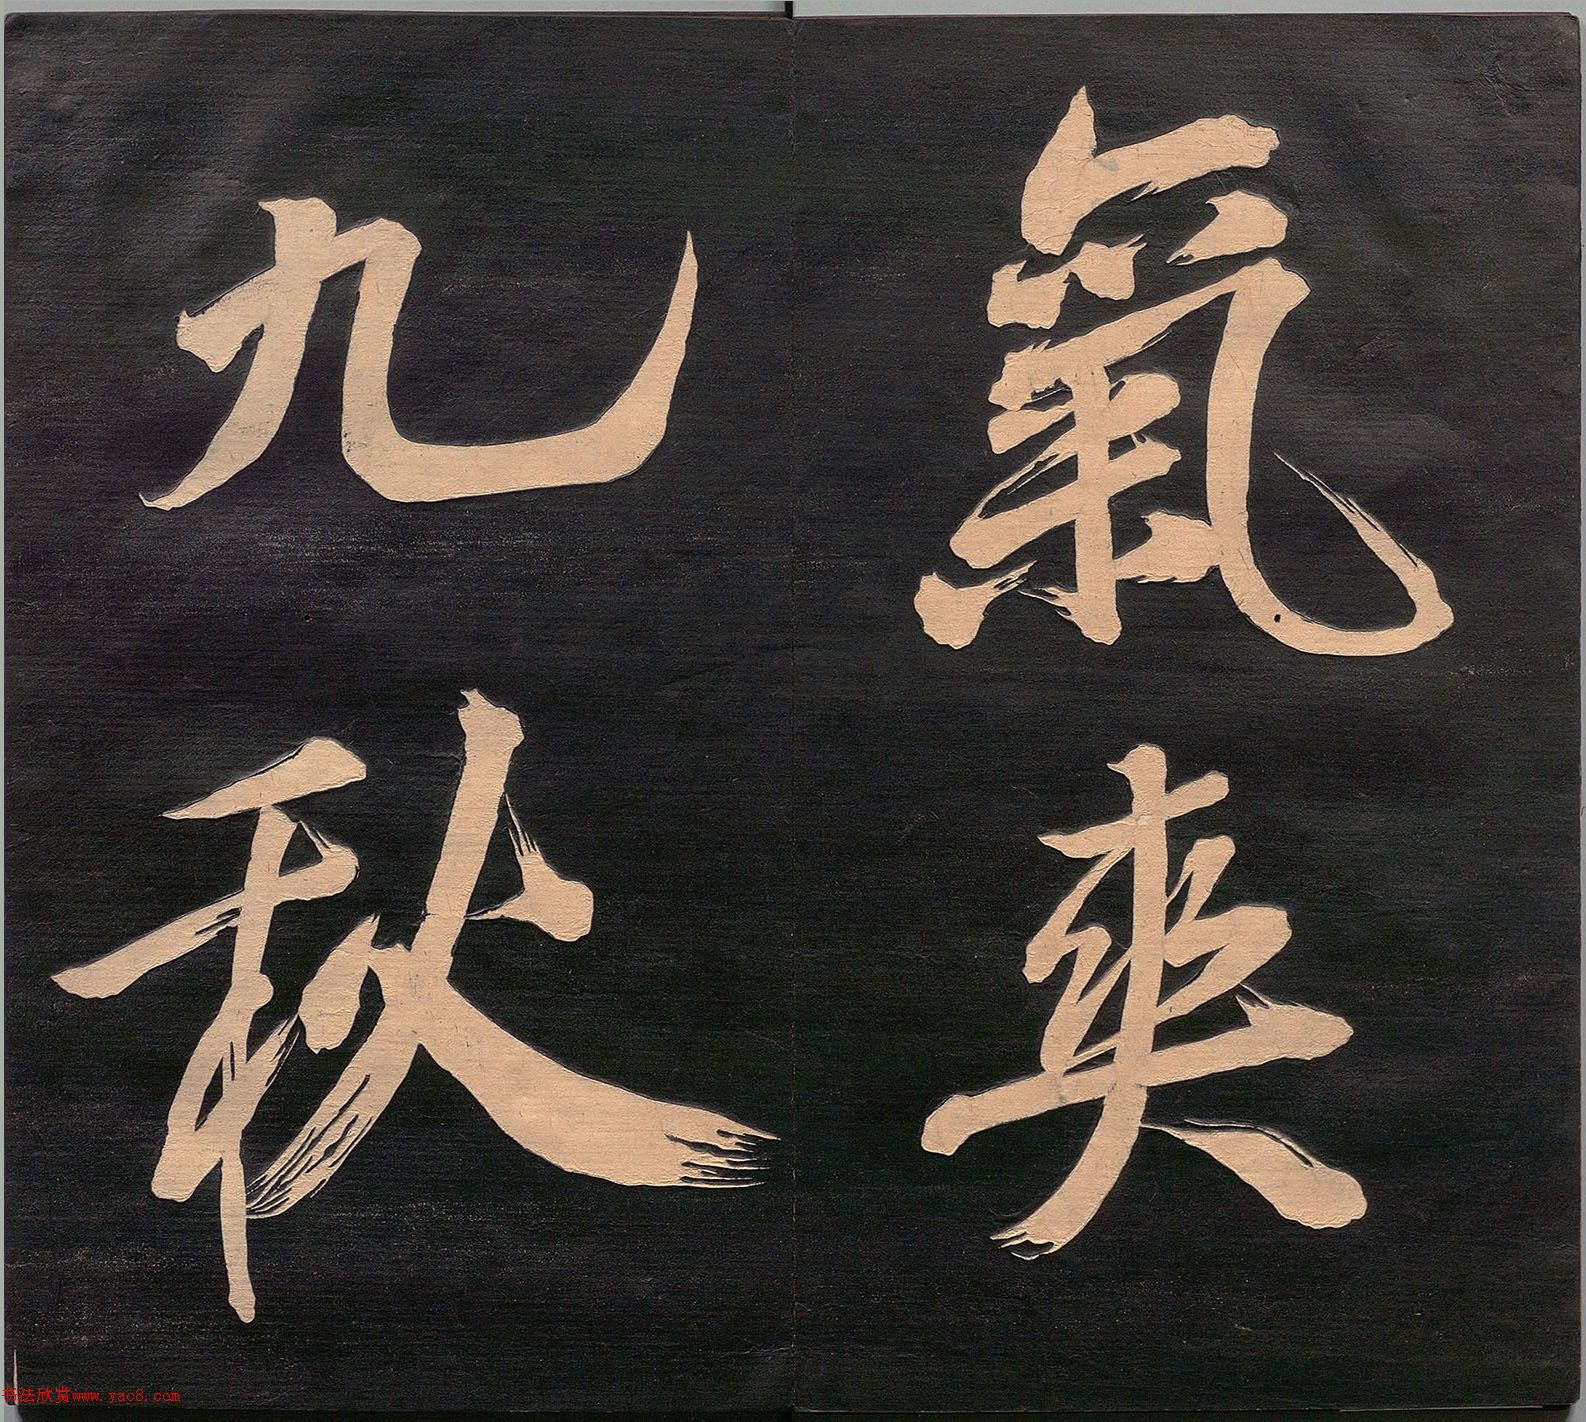 氣爽
九秋
书法欣赏www.yac8.com